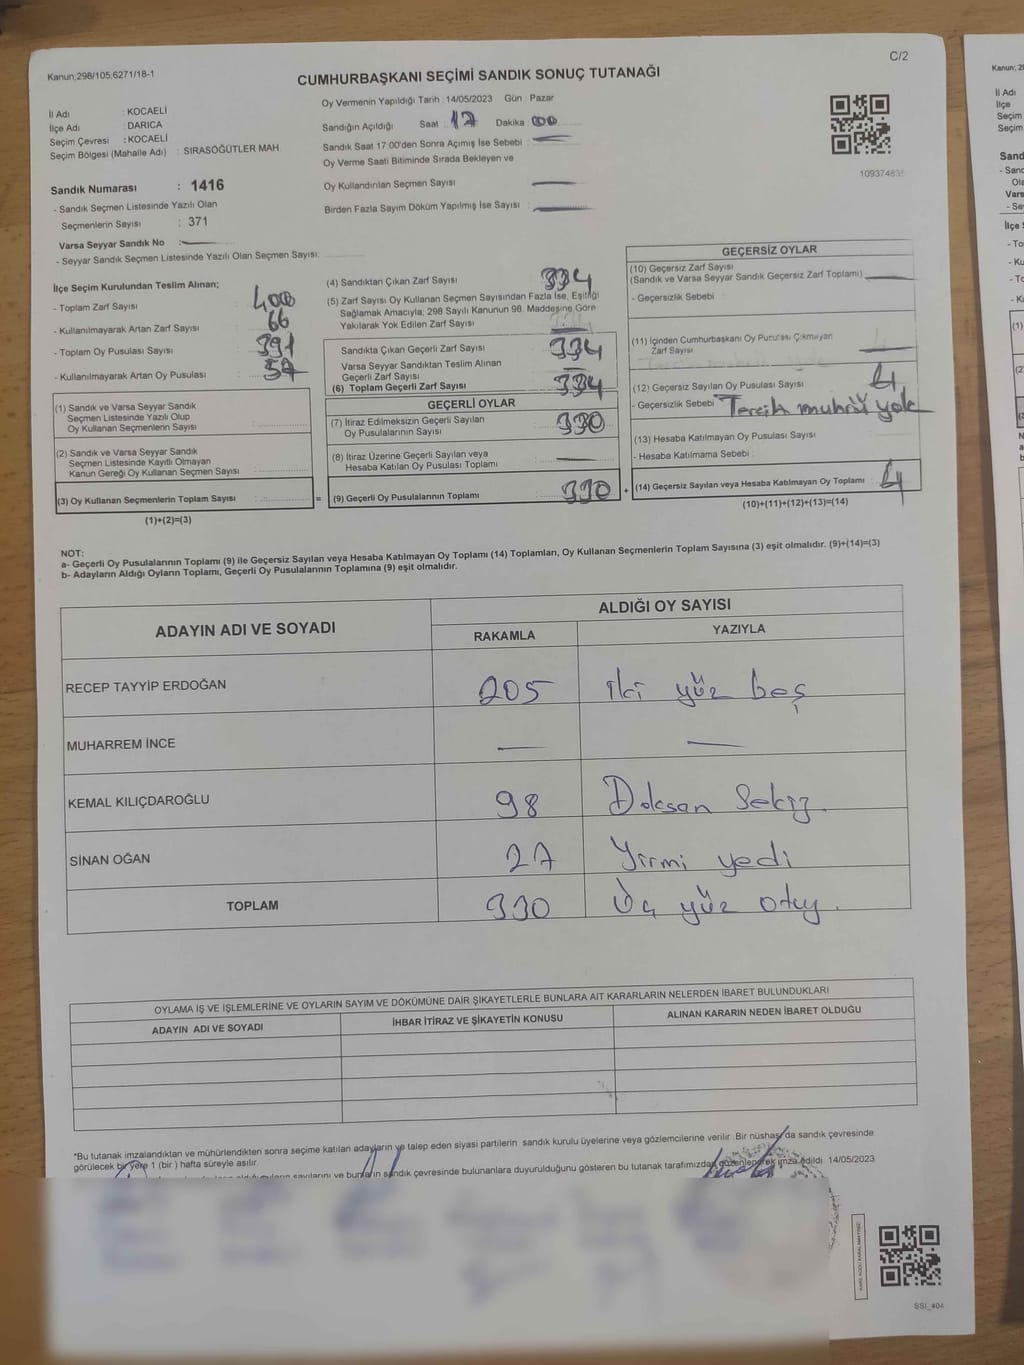 Kanun;298/105;6271/18-1
C/2
CUMHURBAŞKANI SEÇİMİ SANDIK SONUÇ TUTANAĞI
İl Adı : KOCAELİ
İlçe Adı : DARICA
Seçim Çevresi : KOCAELİ
Seçim Bölgesi (Mahalle Adı) : SIRASÖĞÜTLER MAH
Sandık Numarası : 1416
- Sandık Seçmen Listesinde Yazılı Olan
Seçmenlerin Sayısı : 371
Varsa Seyyar Sandık No :
- Seyyar Sandık Seçmen Listesinde Yazılı Olan Seçmen Sayısı:
Oy Vermenin Yapıldığı Tarih : 14/05/2023 Gün : Pazar
Sandığın Açıldığı Saat : 17 Dakika : 00
Sandık Saat 17:00'den Sonra Açımış İse Sebebi :
Oy Verme Saati Bitiminde Sırada Bekleyen ve
Oy Kullandırılan Seçmen Sayısı :
Birden Fazla Sayım Döküm Yapılmış İse Sayısı :
İlçe Seçim Kurulundan Teslim Alınan;
- Toplam Zarf Sayısı : 400
- Kullanılmayarak Artan Zarf Sayısı : 66
- Toplam Oy Pusulası Sayısı : 391
- Kullanılmayarak Artan Oy Pusulası : 57
(1) Sandık ve Varsa Seyyar Sandık
Seçmen Listesinde Yazılı Olup
Oy Kullanan Seçmenlerin Sayısı :
(2) Sandık ve Varsa Seyyar Sandık
Seçmen Listesinde Kayıtlı Olmayan
Kanun Gereği Oy Kullanan Seçmen Sayısı :
(3) Oy Kullanan Seçmenlerin Toplam Sayısı :
(1)+(2)=(3)
(4) Sandıktan Çıkan Zarf Sayısı : 334
(5) Zarf Sayısı Oy Kullanan Seçmen Sayısından Fazla İse, Eşitliği
Sağlamak Amacıyla; 298 Sayılı Kanunun 98. Maddesine Göre
Yakılarak Yok Edilen Zarf Sayısı :
Sandıkta Çıkan Geçerli Zarf Sayısı : 334
Varsa Seyyar Sandıktan Teslim Alınan
Geçerli Zarf Sayısı
(6) Toplam Geçerli Zarf Sayısı : 334
GEÇERLİ OYLAR
(7) İtiraz Edilmeksizin Geçerli Sayılan
Oy Pusulalarının Sayısı : 330
(8) İtiraz Üzerine Geçerli Sayılan veya
Hesaba Katılan Oy Pusulası Toplamı :
= (9) Geçerli Oy Pusulalarının Toplamı : 330 +
GEÇERSİZ OYLAR
(10) Geçersiz Zarf Sayısı
(Sandık ve Varsa Seyyar Sandık Geçersiz Zarf Toplamı) :
- Geçersizlik Sebebi :
(11) İçinden Cumhurbaşkanı Oy Pusulası Çıkmayan
Zarf Sayısı :
(12) Geçersiz Sayılan Oy Pusulası Sayısı : 4
- Geçersizlik Sebebi : Tercih muhrü yok
(13) Hesaba Katılmayan Oy Pusulası Sayısı :
- Hesaba Katılmama Sebebi :
(14) Geçersiz Sayılan veya Hesaba Katılmayan Oy Toplamı : 4
(10)+(11)+(12)+(13)=(14)
NOT:
a- Geçerli Oy Pusulalarının Toplamı (9) ile Geçersiz Sayılan veya Hesaba Katılmayan Oy Toplamı (14) Toplamları, Oy Kullanan Seçmenlerin Toplam Sayısına (3) eşit olmalıdır. (9)+(14)=(3)
b- Adayların Aldığı Oyların Toplamı, Geçerli Oy Pusulalarının Toplamına (9) eşit olmalıdır.
ADAYIN ADI VE SOYADI ALDIĞI OY SAYISI
RAKAMLA YAZIYLA
RECEP TAYYİP ERDOĞAN 205 iki yüz beş
MUHARREM İNCE — —
KEMAL KILIÇDAROĞLU 98 Doksan Sekiz.
SİNAN OĞAN 27 Yirmi yedi
TOPLAM 330 Üç yüz otuz.
OYLAMA İŞ VE İŞLEMLERİNE VE OYLARIN SAYIM VE DÖKÜMÜNE DAİR ŞİKAYETLERLE BUNLARA AİT KARARLARIN NELERDEN İBARET BULUNDUKLARI
ADAYIN ADI VE SOYADI İHBAR İTİRAZ VE ŞİKAYETİN KONUSU ALINAN KARARIN NEDEN İBARET OLDUĞU
*Bu tutanak imzalandıktan ve mühürlendikten sonra seçime katılan adayların ve talep eden siyasi partilerin sandık kurulu üyelerine veya gözlemcilerine verilir. Bir nüshası da sandık çevresinde
görülecek bir yere 1 (bir) hafta süreyle asılır.
sayılarını ve bunların sandık çevresinde bulunanlara duyurulduğunu gösteren bu tutanak tarafımızdan düzenlenerek imza edildi. 14/05/2023
SSI_404